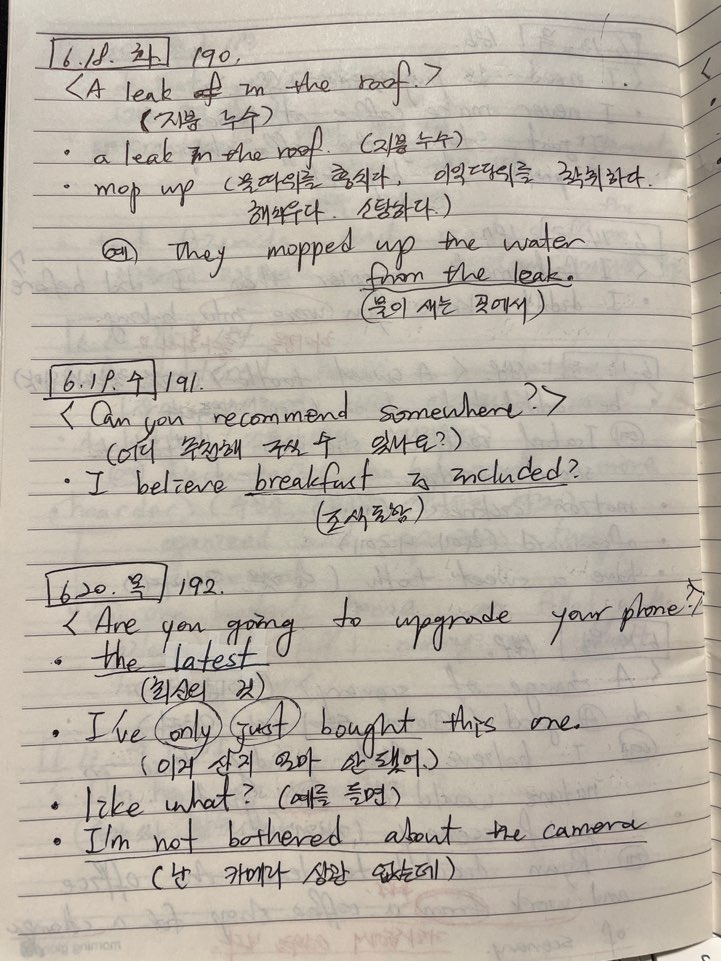 6.18. 화. 190.
<A leak of in the roof.>
(지붕 누수)
• a leak in the roof. (지붕 누수)
• mop up (물따위를 훔치다, 이익따위를 착취하다.
해치우다. 소탕하다.)
예) They mopped up the water
from the leak.
(물이 새는 곳에서)
6.19. 수 191.
<Can you recommend somewhere?>
(어디 추천해 주실 수 있나요?)
• I believe breakfast is included?
(조식포함)
6.20. 목 192.
<Are you going to upgrade your phone?>
• the latest
(최신의 것)
• I've only just bought this one.
(이거 산지 얼마 안 됐어.)
• like what? (예를 들면)
• I'm not bothered about the camera
(난 카메라 상관 없는데)